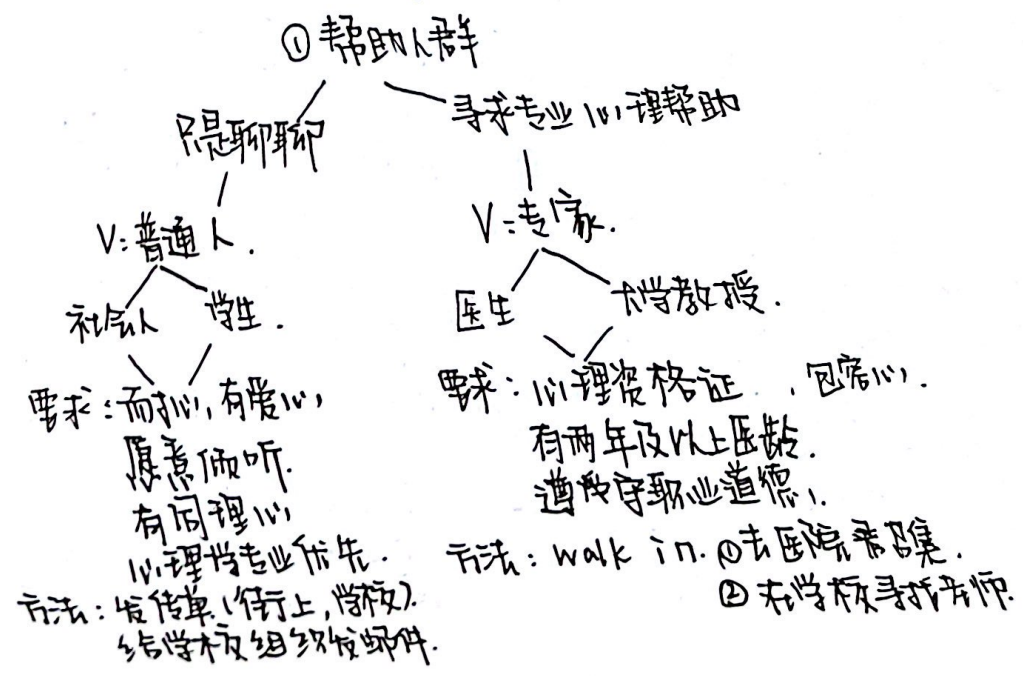 ①帮助人群
只是聊聊
寻求专业心理帮助
V:普通人.
V:专家.
社会人
学生.
医生
大学教授.
要求:耐心,有爱心,
愿意倾听.
有同理心
心理学专业优先.
方法:发传单(街上,学校).
给学校组织发邮件.
要求:心理资格证.,包容心.
有两年及以上医龄.
遵守职业道德.
方法:walk in.①去医院召集.
②在学校寻找老师.